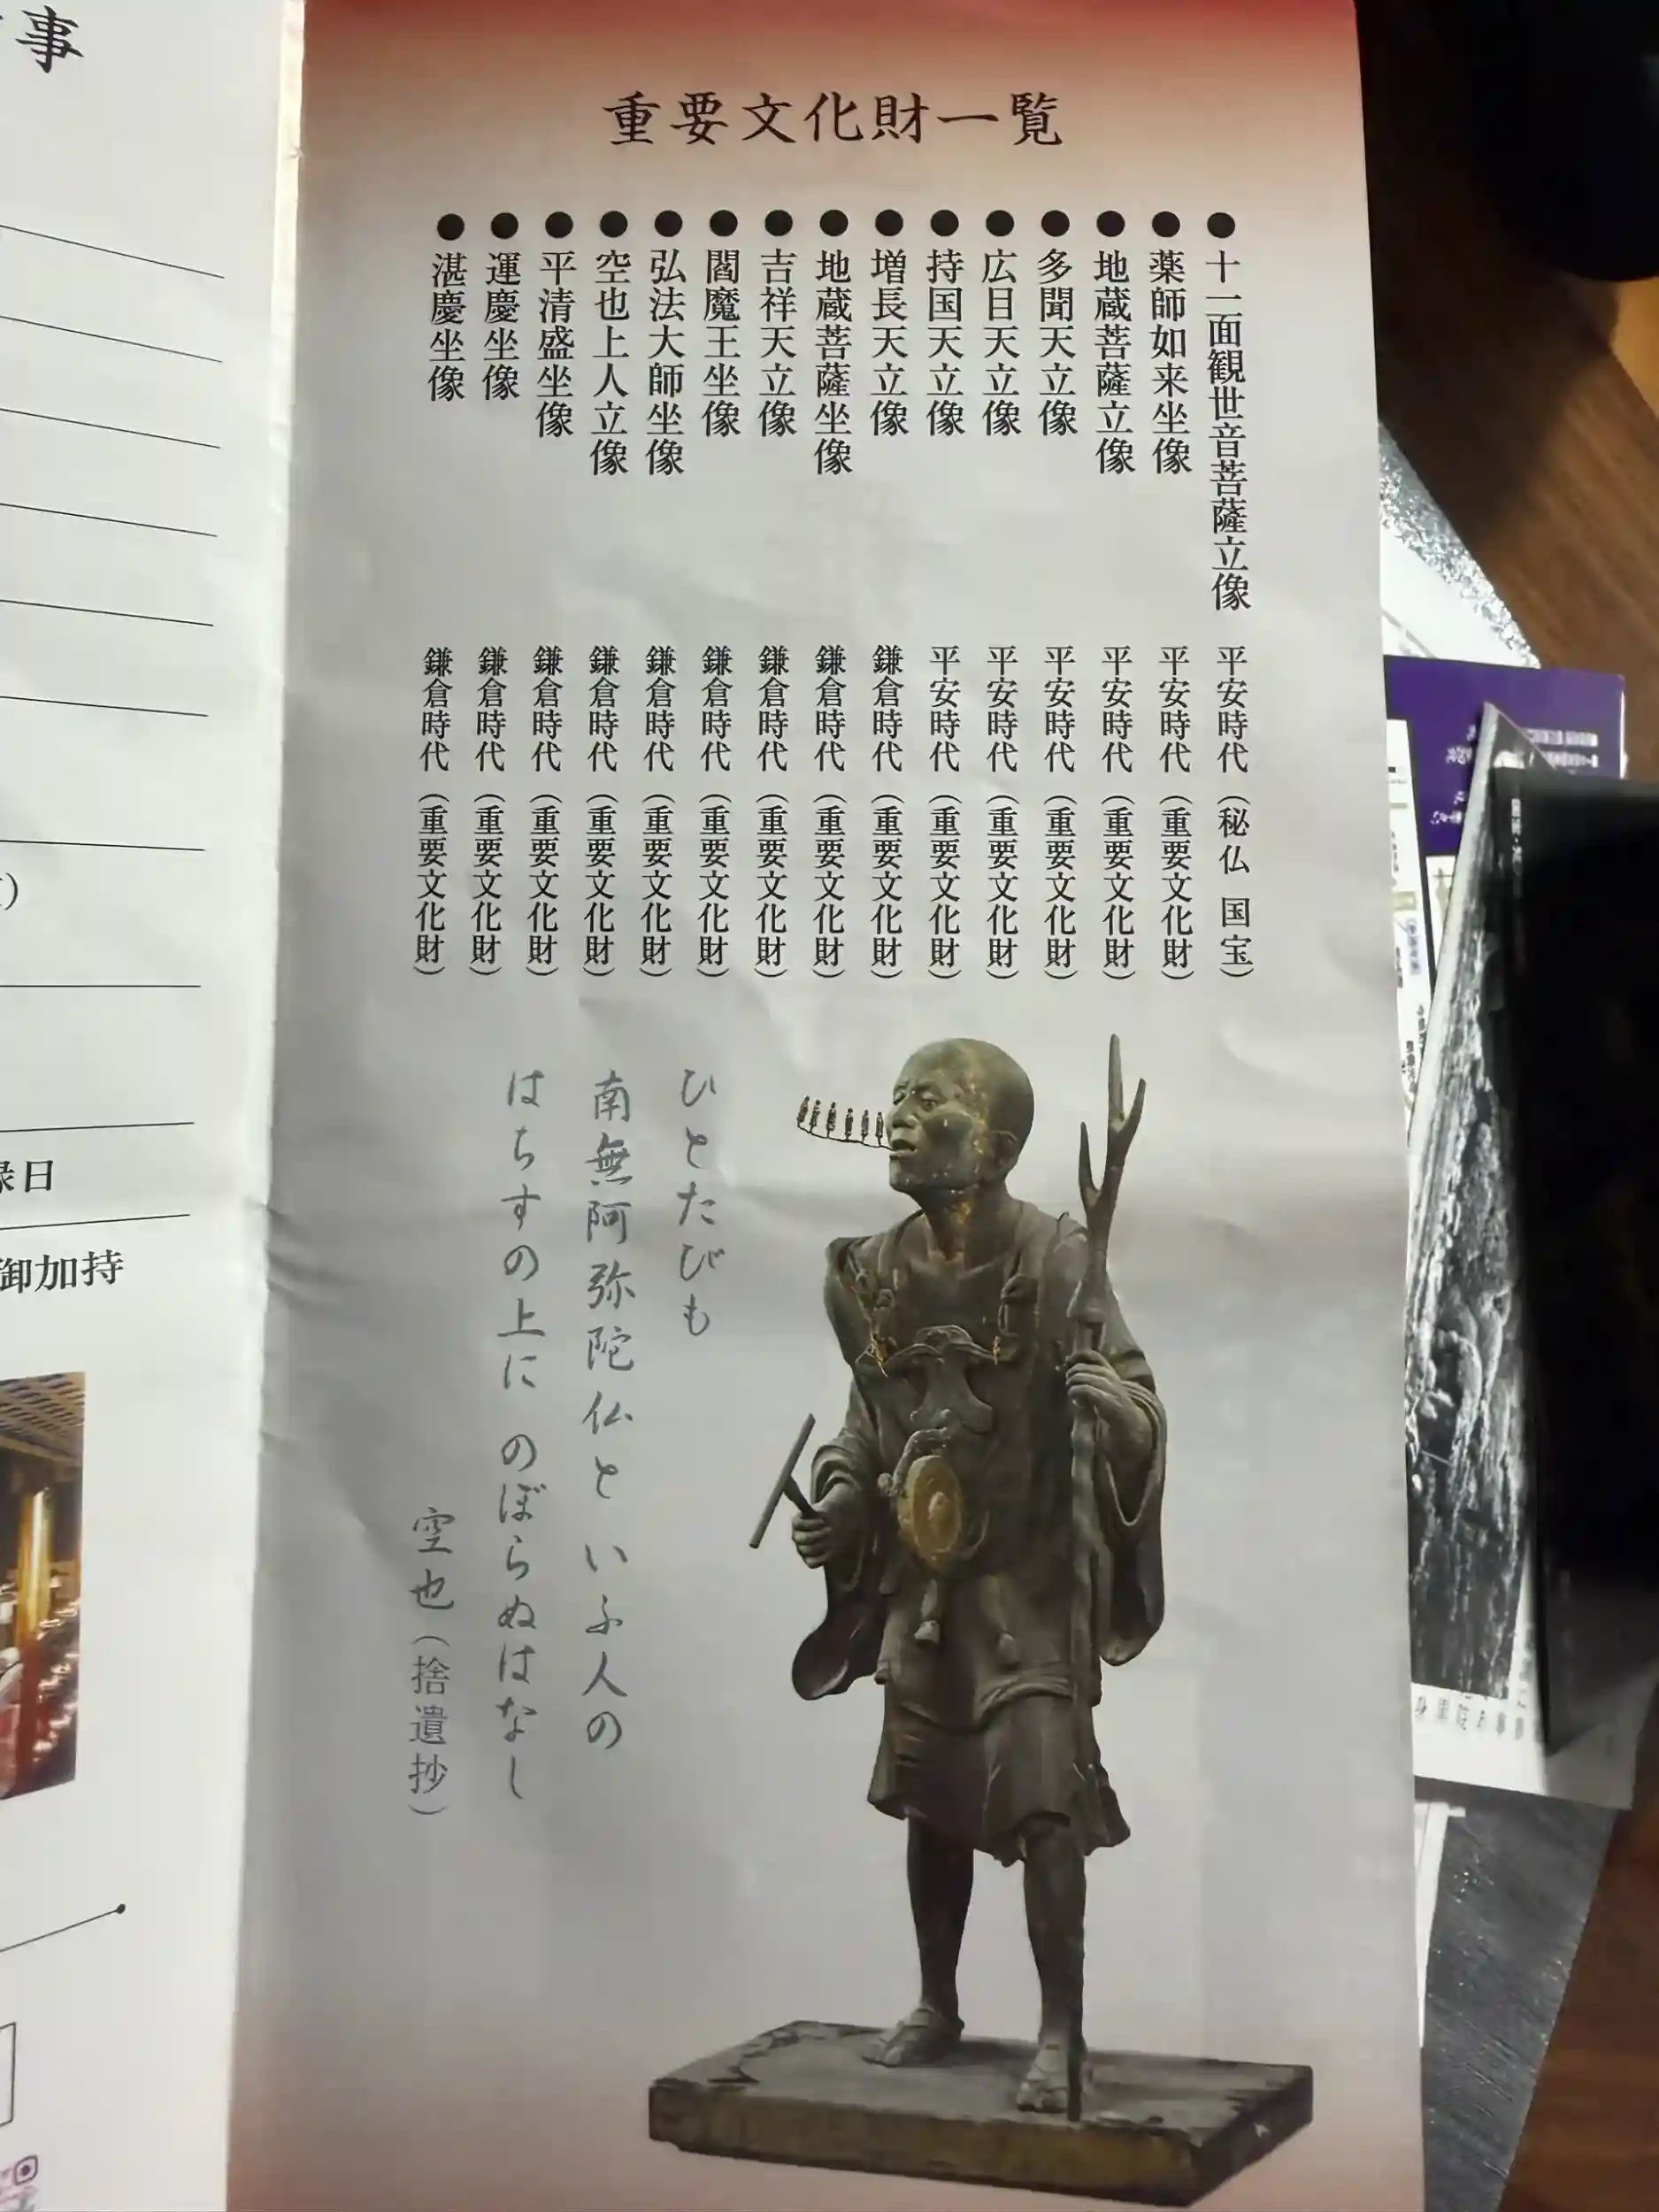 重要文化財一覧
●十一面観世音菩薩立像 平安時代（秘仏 国宝）
●薬師如来坐像 平安時代（重要文化財）
●地蔵菩薩立像 平安時代（重要文化財）
●多聞天立像 平安時代（重要文化財）
●広目天立像 平安時代（重要文化財）
●持国天立像 平安時代（重要文化財）
●増長天立像 鎌倉時代（重要文化財）
●地蔵菩薩坐像 鎌倉時代（重要文化財）
●吉祥天立像 鎌倉時代（重要文化財）
●閻魔王坐像 鎌倉時代（重要文化財）
●弘法大師坐像 鎌倉時代（重要文化財）
●空也上人立像 鎌倉時代（重要文化財）
●平清盛坐像 鎌倉時代（重要文化財）
●運慶坐像 鎌倉時代（重要文化財）
●湛慶坐像 鎌倉時代（重要文化財）
ひとたびも
南無阿弥陀仏と いふ人の
はちすの上に のぼらぬはなし
空也（捨遺抄）
事
日
御加持